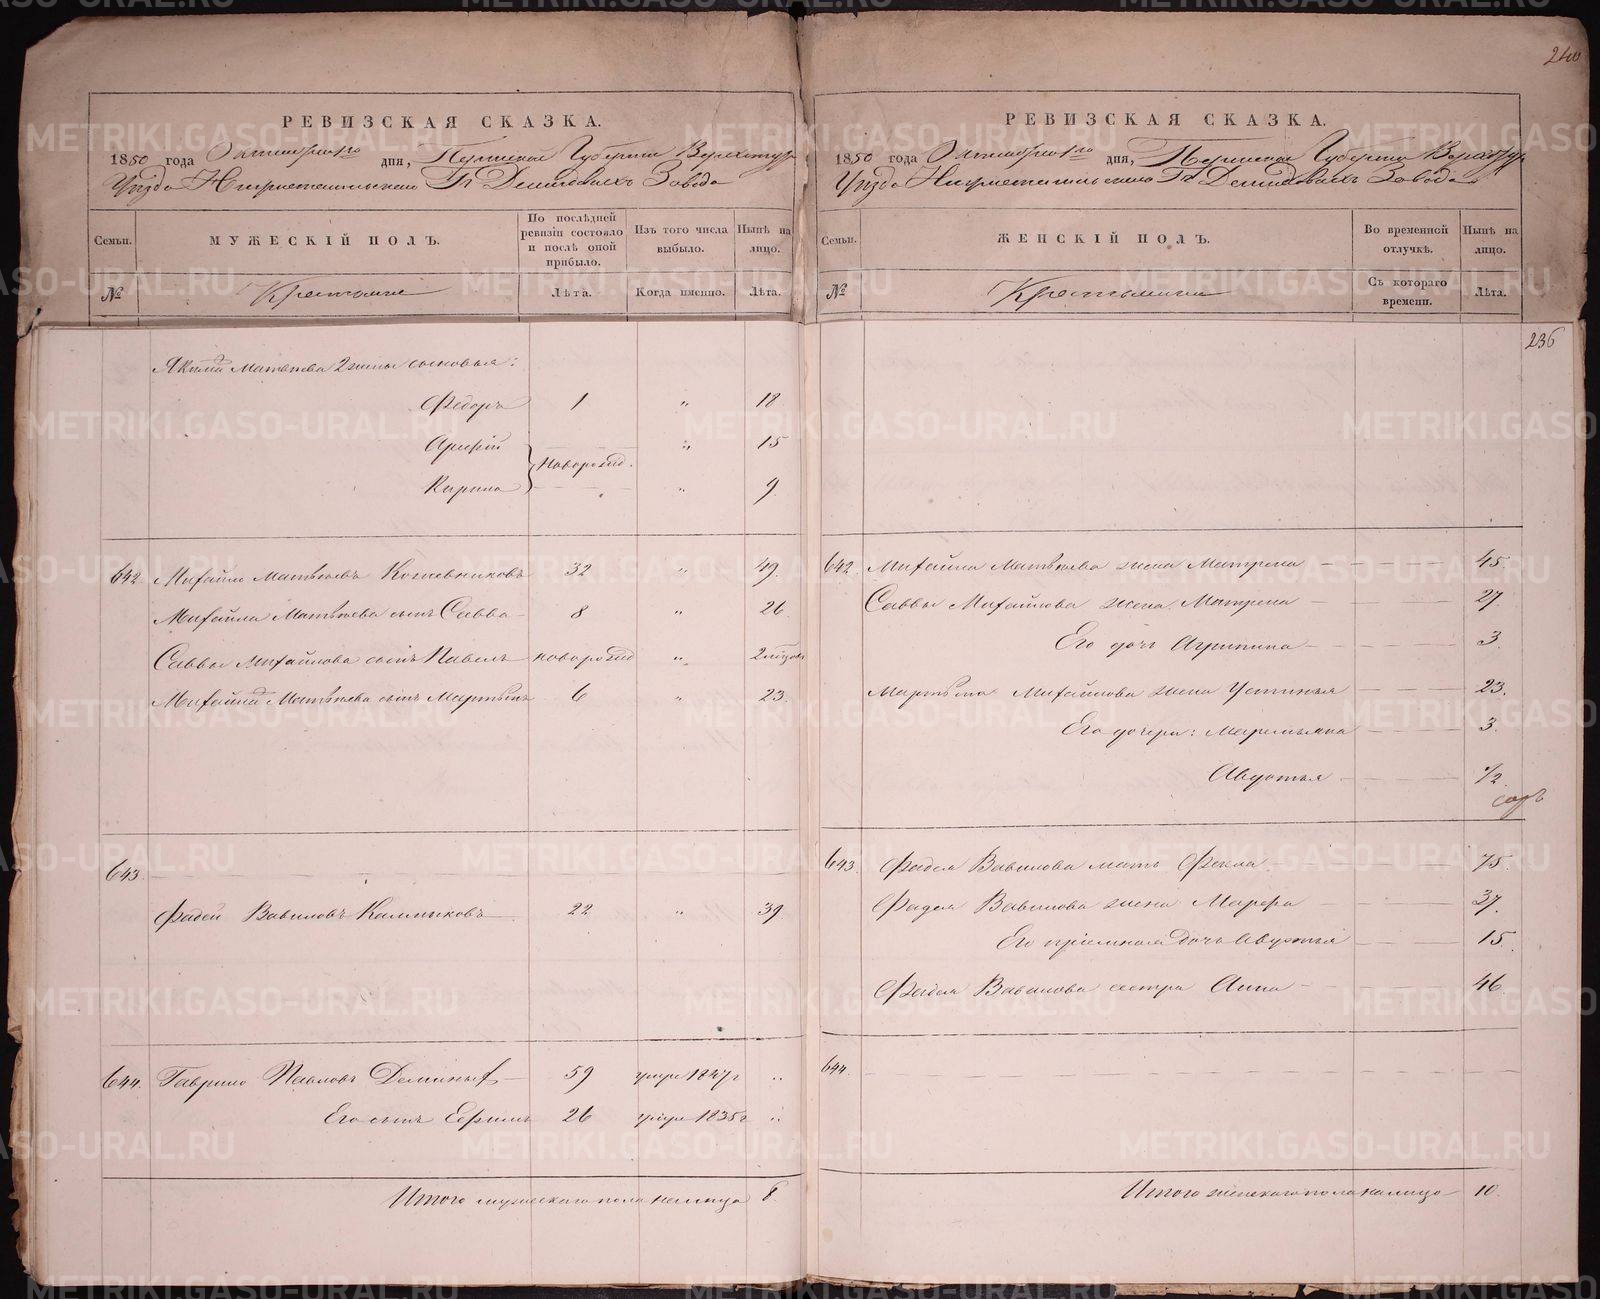 240
РЕВИЗСКАЯ СКАЗКА.
1850 года Октября 1го дня, Пермской Губернии Верхотур
Уѣзда Нижнетагильскаго Гг Демидовыхъ Завода
Семьи.
МУЖЕСКІЙ ПОЛЪ.
По послѣдней ревизіи состояло и послѣ оной прибыло.
Изъ того числа выбыло.
Нынѣ на лицо.
№
Крестьяне
Лѣта.
Когда именно.
Лѣта.
Матвѣева 2 жены сыновья:
Федоръ 1 " 18
Новорожд. " 15
Кирила " 9
642. Михайло Матвѣевъ Кожевниковъ 32 " 49.
Михайла Матвѣева сынъ Савва 8 " 26
Саввы Михайлова сынъ Павелъ новорожд "
Михайла Матвѣева сынъ Мартынъ 6 " 23.
643.
Фадей Вавиловъ Калмыковъ 22 " 39
644. Гаврило Павловъ Деминых 59 умре 1847г "
Его сынъ Ефимъ 26 умре 1835г "
Итого мужескаго пола налицо 8
РЕВИЗСКАЯ СКАЗКА.
1850 года Октября 1го дня, Пермской Губерніи Верхотур
Уѣзда Нижнетагильскаго Гг Демидовыхъ Завода
Семьи.
ЖЕНСКІЙ ПОЛЪ.
Во временной отлучкѣ.
Нынѣ на лицо.
№
Крестьянки
Съ котораго времени.
Лѣта.
236
642. Михайла Матвѣева жена Матрена 45.
Саввы Михайлова жена Матрена 27
Его дочь Агрипина 3.
Мартына Михайлова жена Устинья 23.
Его дочери: Маремьяна 3.
Авдотья 1/2
643. Фадея Вавилова мать Фекла 75.
Фадея Вавилова жена Марфа 37.
Его пріемная дочь Авдотья 15.
Фадея Вавилова сестра Анна 46.
644.
Итого женскаго пола налицо 10.
METRIKI.GASO-URAL.RU